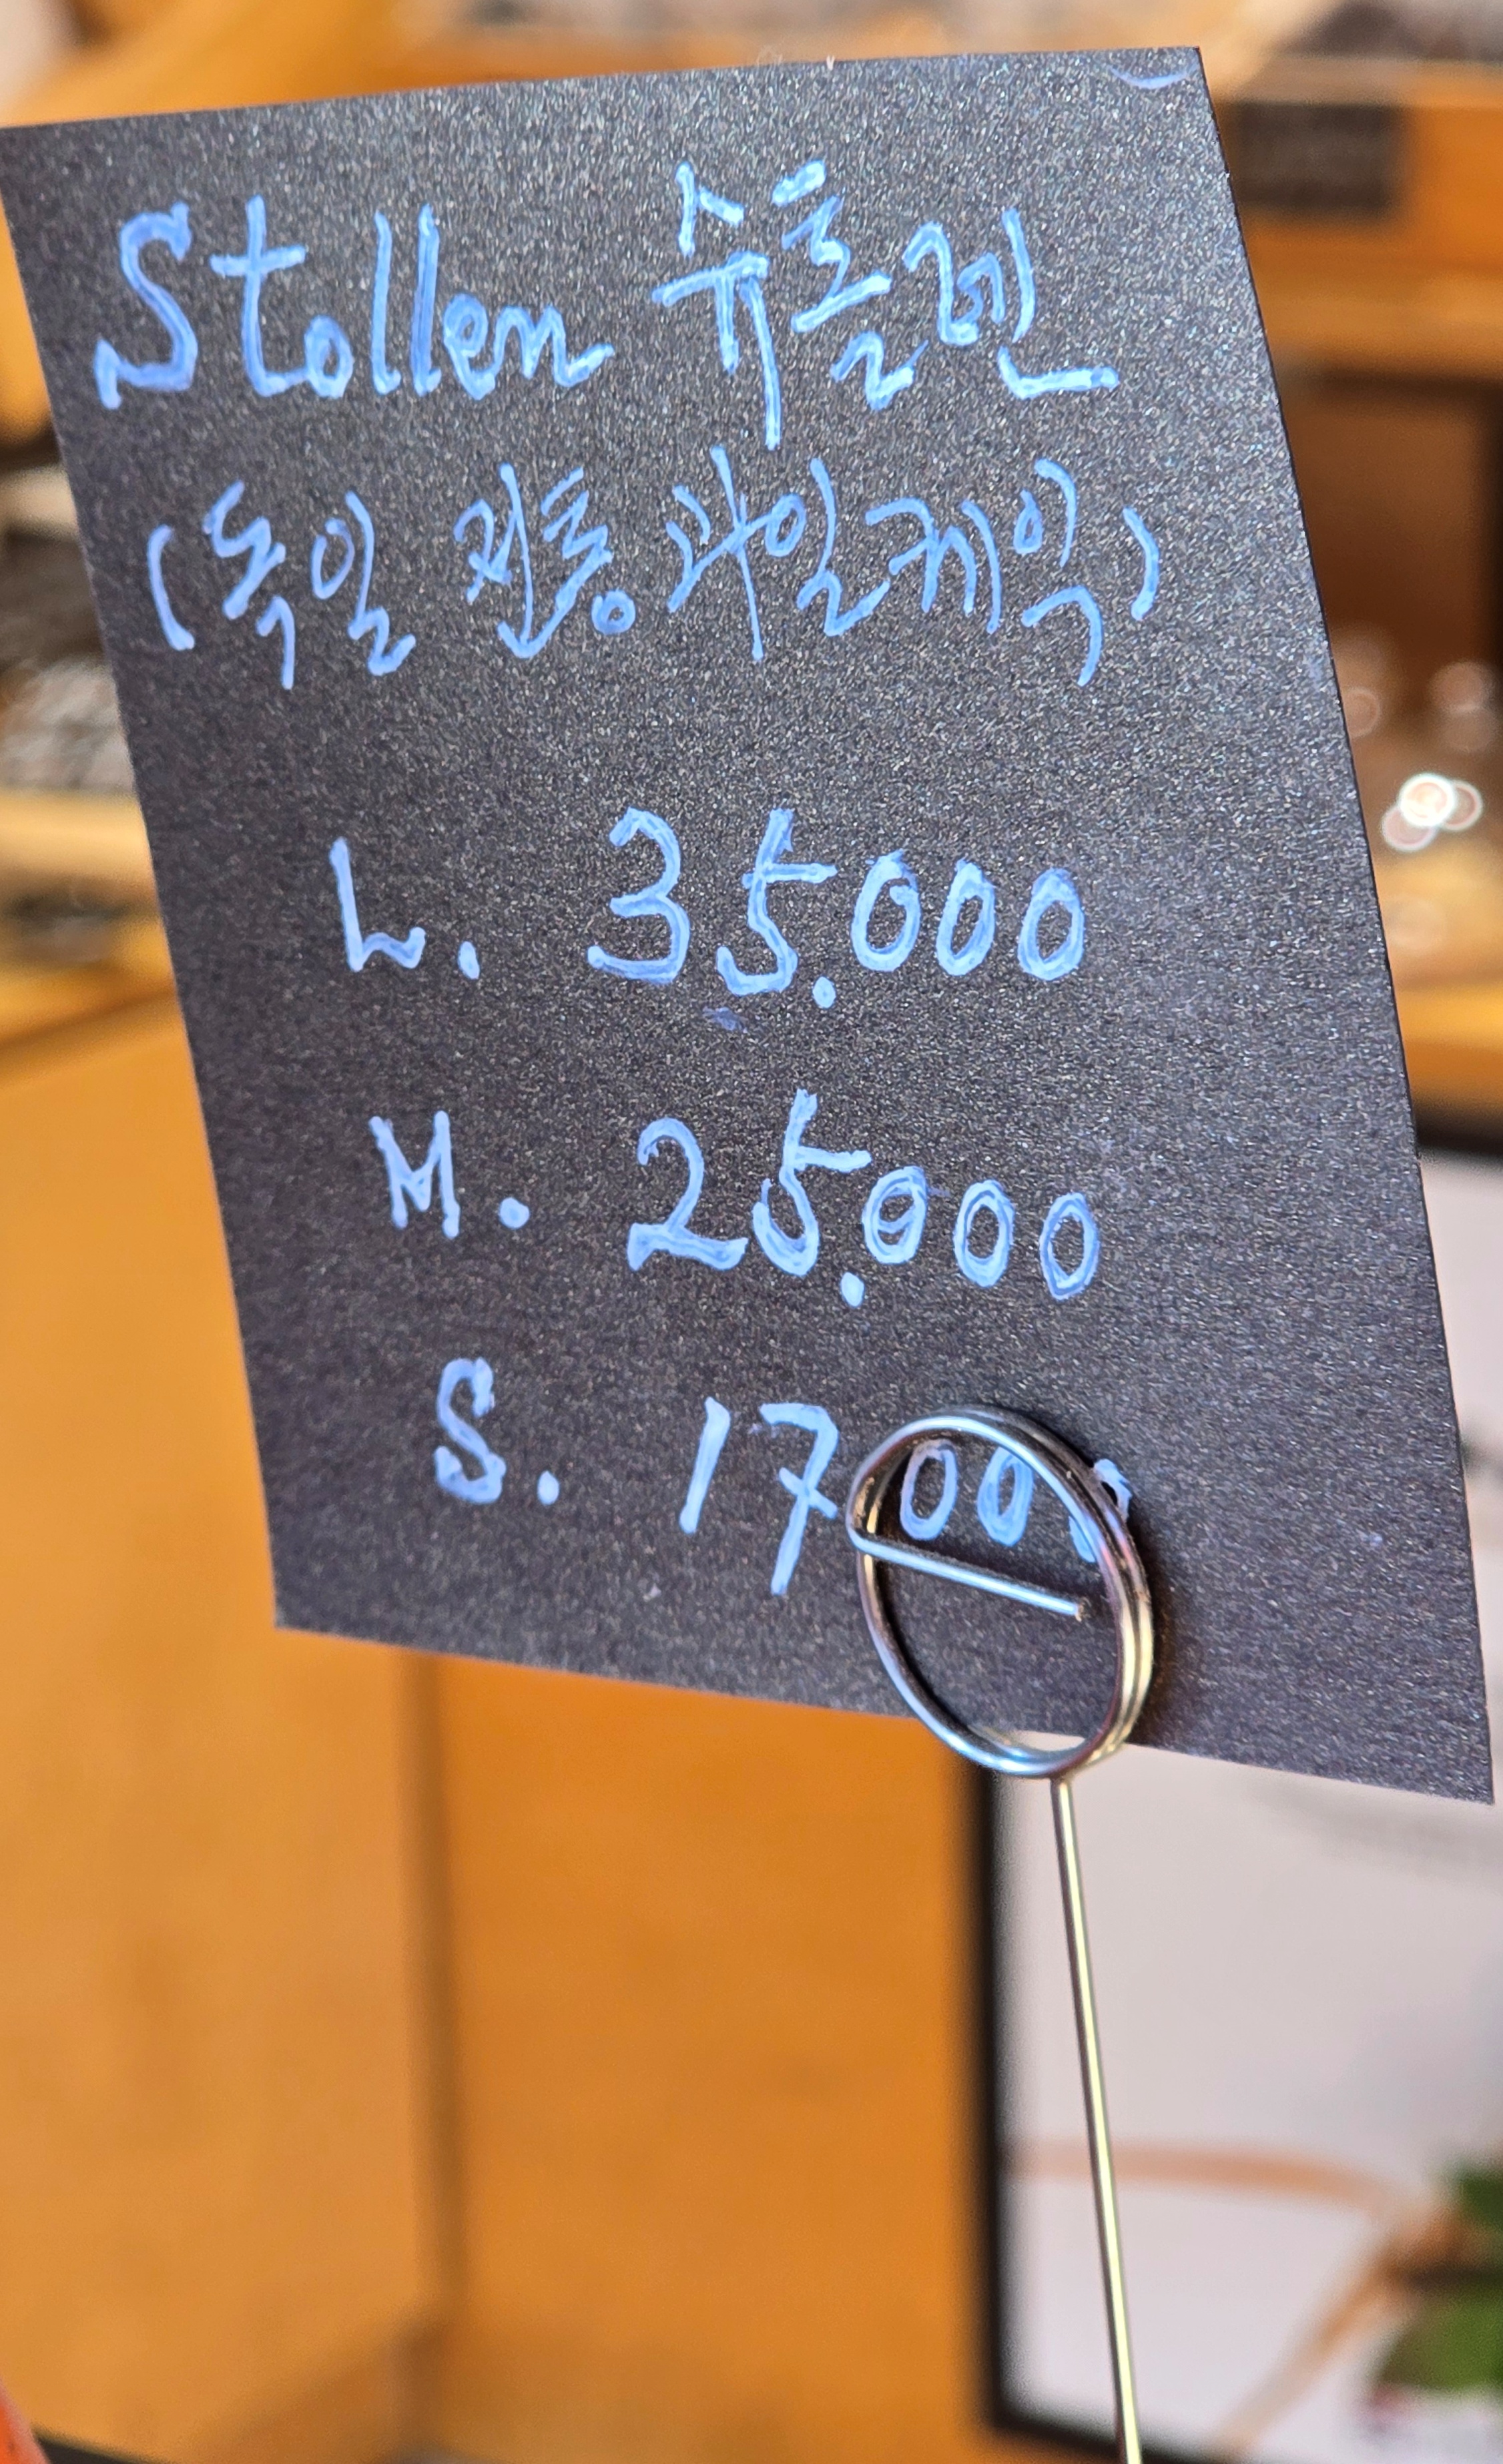 Stollen 슈톨렌
(독일 전통 과일케익)
L. 35.000
M. 25.000
S. 17000